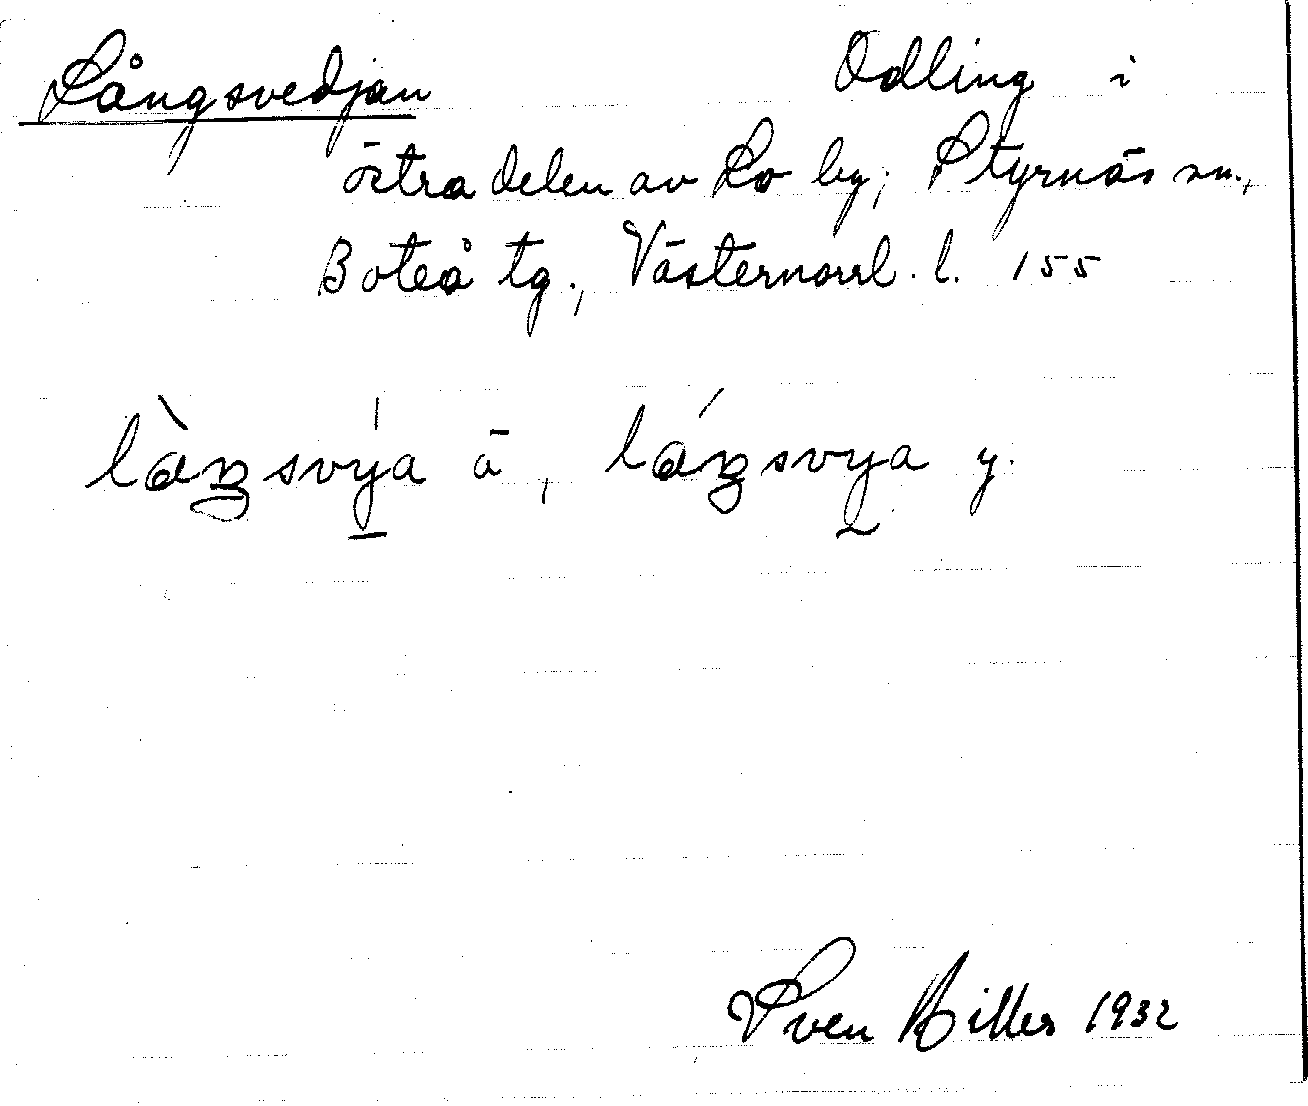 Långsvedjan Odling i
östra delen av Lo by, Styrnäs sn.,
Boteå tg., Västernorrl. l. 155
làŋsvy̍a ä, láŋsvya y.
Sven 1932